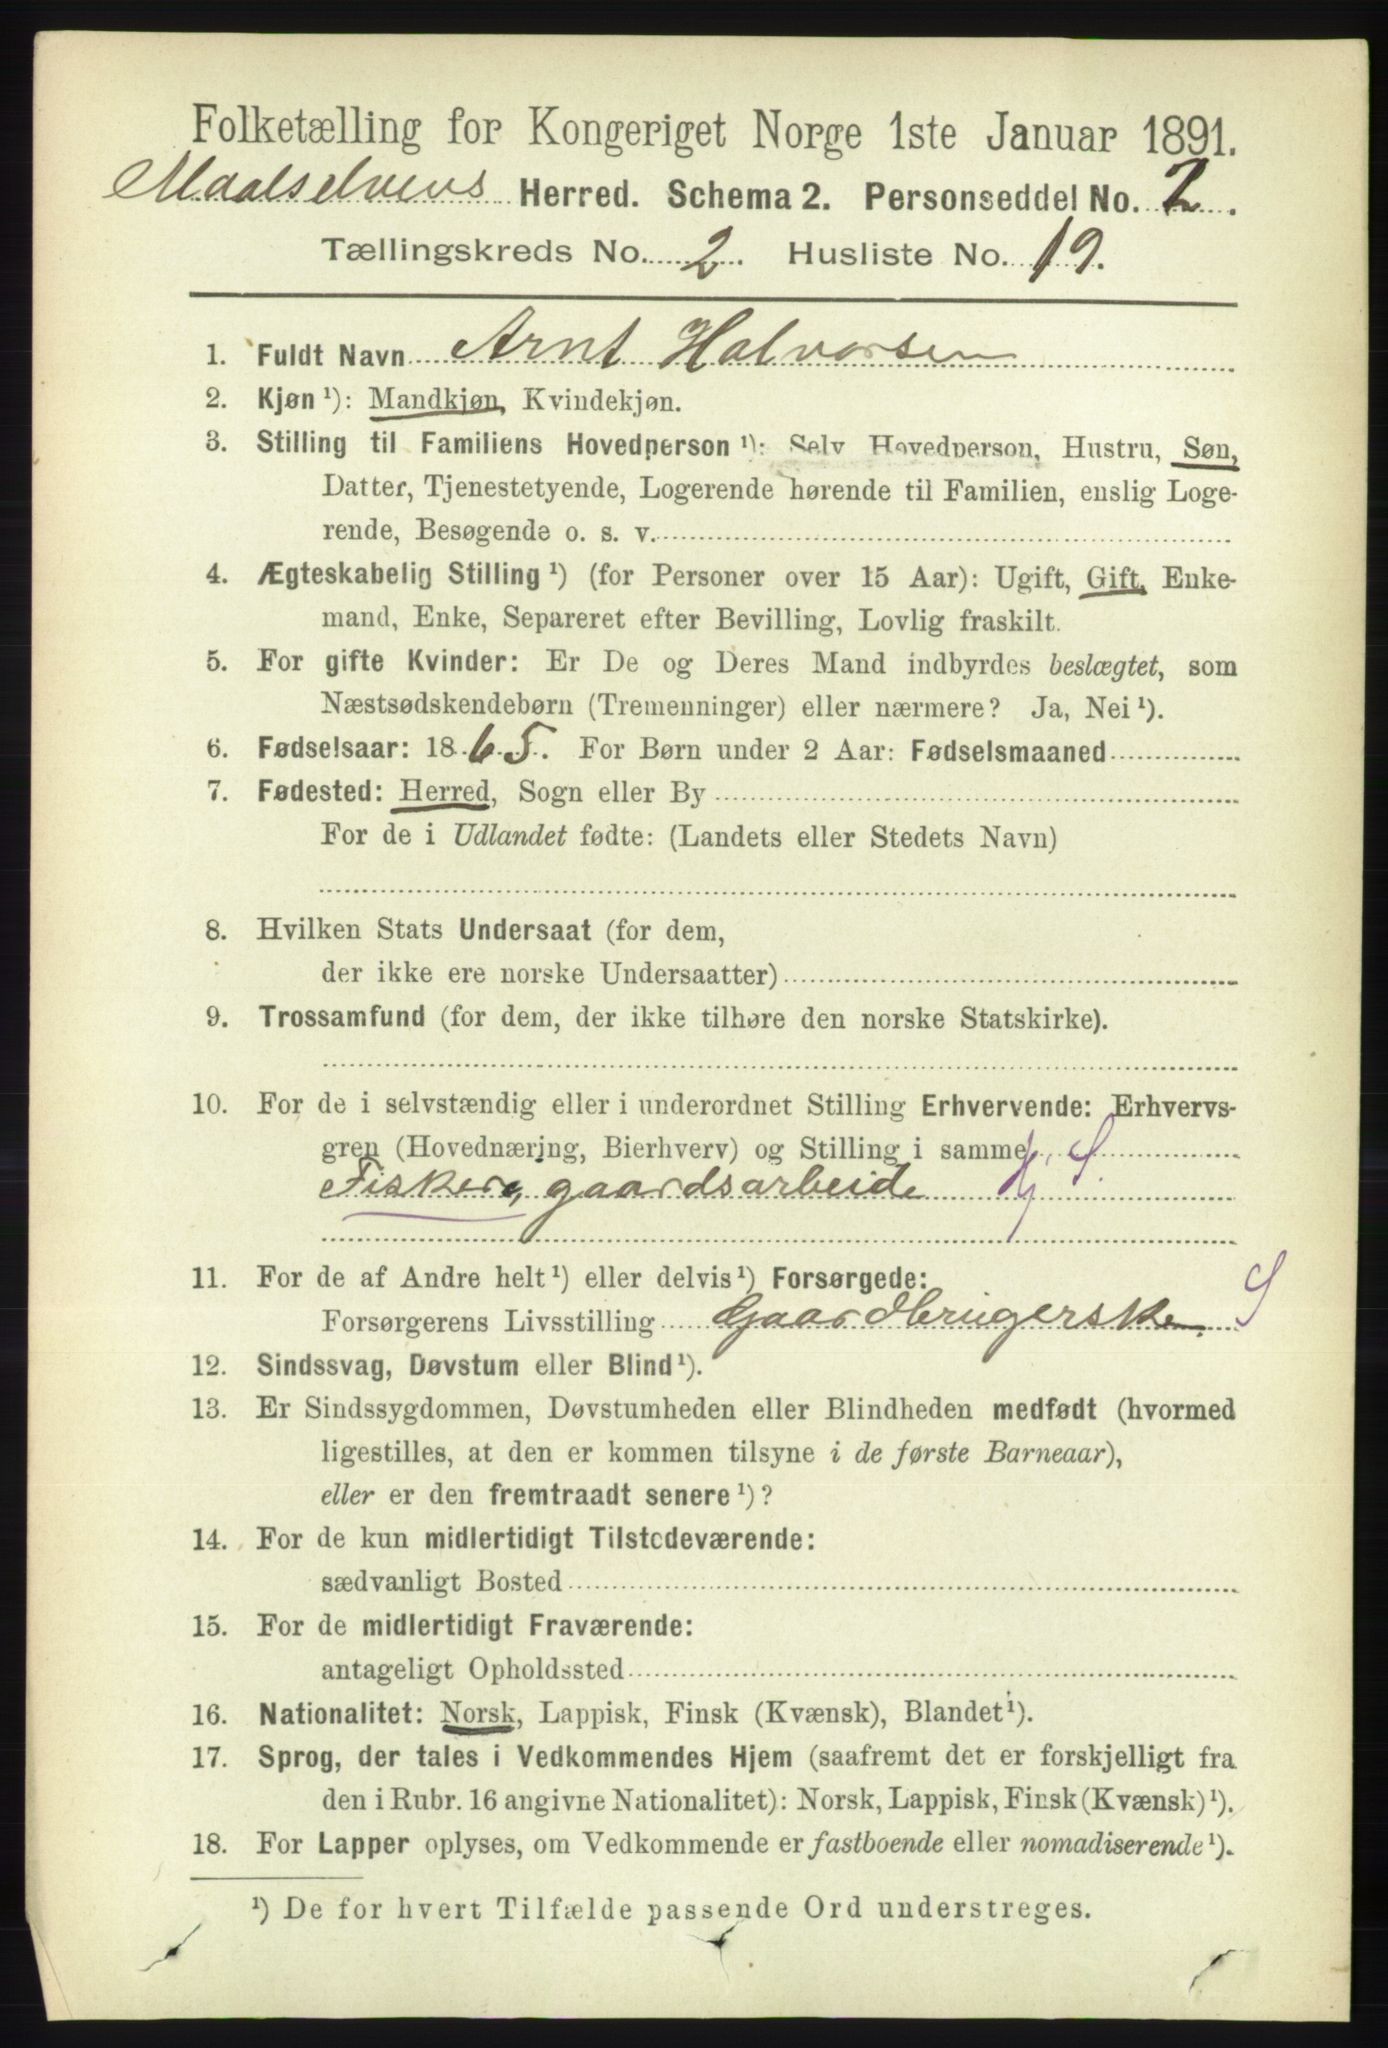 Folketælling for Kongeriget Norge 1ste Januar 1891.
Maalselvens Herred. Schema 2. Personseddel No. 2.
Tællingskreds No. 2. Husliste No. 19.
1. Fuldt Navn Arnt Halvorsen
2. Kjøn ¹): Mandkjøn, Kvindekjøn.
3. Stilling til Familiens Hovedperson ¹): Selv Hovedperson, Hustru, Søn,
Datter, Tjenestetyende, Logerende hørende til Familien, enslig Loge-
rende, Besøgende o. s. v.
4. Ægteskabelig Stilling ¹) (for Personer over 15 Aar): Ugift, Gift, Enke-
mand, Enke, Separeret efter Bevilling, Lovlig fraskilt.
5. For gifte Kvinder: Er De og Deres Mand indbyrdes beslægtet, som
Næstsødskendebørn (Tremenninger) eller nærmere? Ja, Nei ¹).
6. Fødselsaar: 1865. For Børn under 2 Aar: Fødselsmaaned
7. Fødested: Herred, Sogn eller By
For de i Udlandet fødte: (Landets eller Stedets Navn)
8. Hvilken Stats Undersaat (for dem,
der ikke ere norske Undersaatter)
9. Trossamfund (for dem, der ikke tilhøre den norske Statskirke).
10. For de i selvstændig eller i underordnet Stilling Erhvervende: Erhvervs-
gren (Hovednæring, Bierhverv) og Stilling i samme S.
Fisker, gaardsarbeide
11. For de af Andre helt ¹) eller delvis ¹) Forsørgede: S
Forsørgerens Livsstilling Gaardbrugerske.
12. Sindssvag, Døvstum eller Blind ¹).
13. Er Sindssygdommen, Døvstumheden eller Blindheden medfødt (hvormed
ligestilles, at den er kommen tilsyne i de første Barneaar),
eller er den fremtraadt senere ¹)?
14. For de kun midlertidigt Tilstedeværende:
sædvanligt Bosted
15. For de midlertidigt Fraværende:
antageligt Opholdssted
16. Nationalitet: Norsk, Lappisk, Finsk (Kvænsk), Blandet ¹).
17. Sprog, der tales i Vedkommendes Hjem (saafremt det er forskjelligt fra
den i Rubr. 16 angivne Nationalitet): Norsk, Lappisk, Finsk (Kvænsk) ¹).
18. For Lapper oplyses, om Vedkommende er fastboende eller nomadiserende ¹).
¹) De for hvert Tilfælde passende Ord understreges.